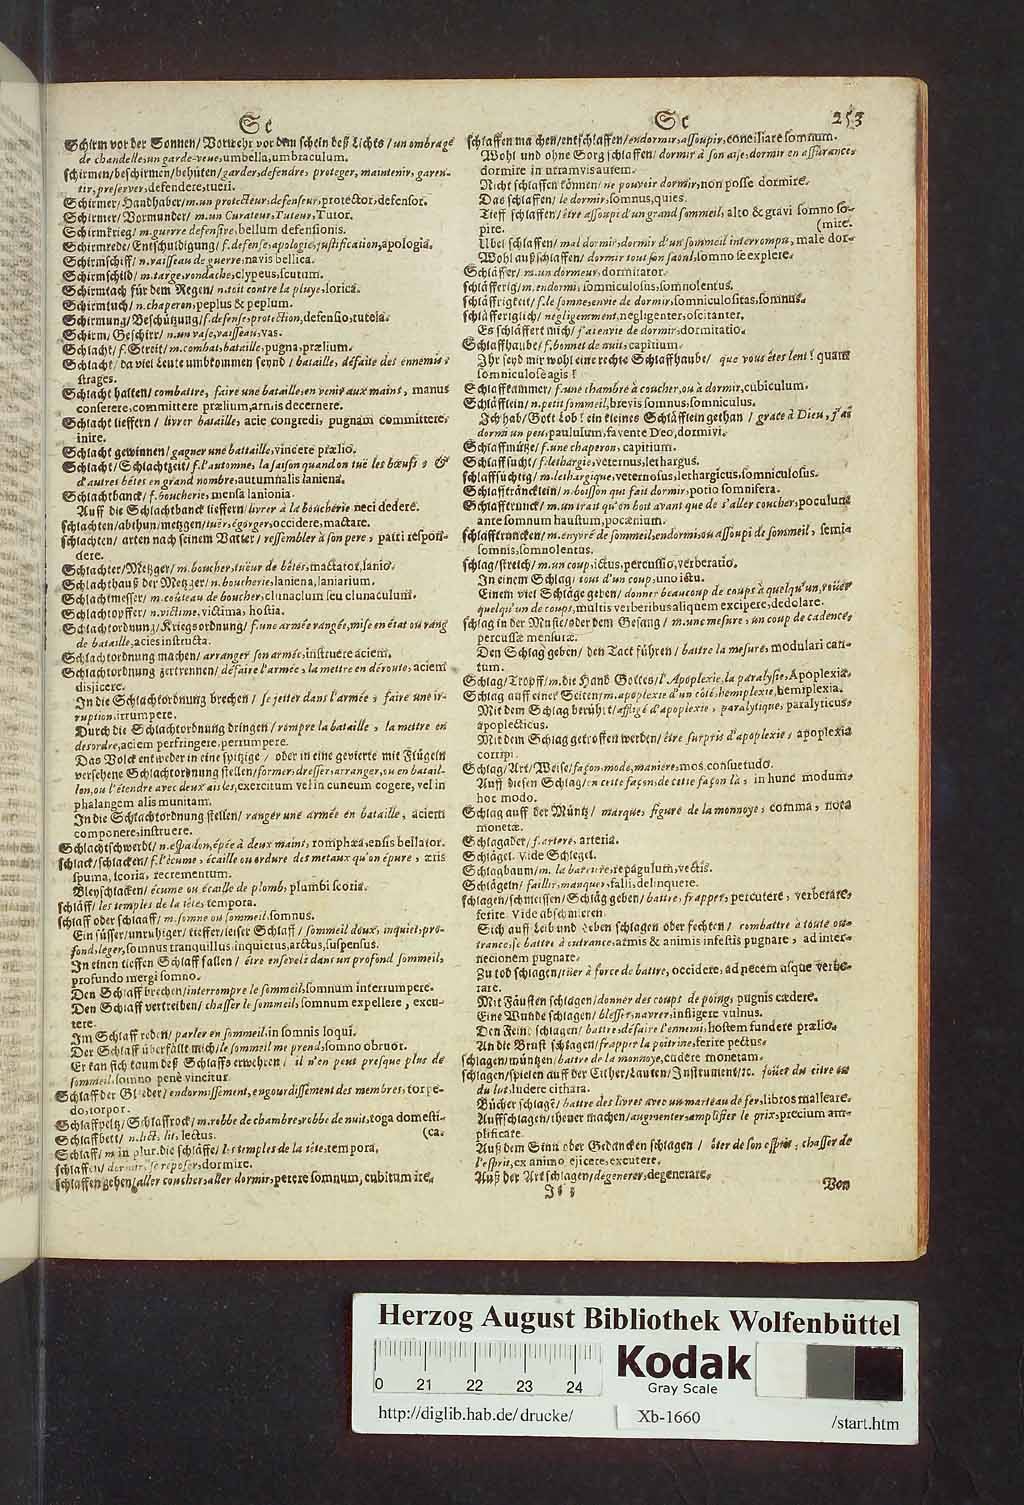 Sc
Schirm vor der Sonnen/ Vorwehr vor dem schein deß Lichts/ un ombrage
de chandelle, un garde-veue, umbella, umbraculum.
schirmen/ beschirmen/ behüten/ garder, defendre, proteger, maintenir, garen-
tir, preserver, defendere, tueri.
Schirmer/ Handhaber/ m. un protecteur, defenseur, protector, defensor.
Schirmer/ Vormunder/ m. un Curateur, Tuteur, Tutor.
Schirmkrieg/ m. guerre defensive, bellum defensionis.
Schirmrede/ Entschuldigung/ f. defense, apologie, justification, apologia.
Schirmschiff/ n. vaisseau de guerre, navis bellica.
Schirmschild/ m. targe, rondache, clypeus, scutum.
Schirmtach für dem Regen/ n. toit contre la pluye, lorica.
Schirmtuch/ n. chaperon, peplus & peplum.
Schirmung/ Beschützung/ f. defense, protection, defensio, tutela.
Schirm/ Geschirr/ n. un vase, vaisseau, vas.
Schlacht/ f. Streit/ m. combat, bataille, pugna, prælium.
Schlacht/ da viel Leute umbkommen seynd/ bataille, défaite des ennemis,
strages.
Schlacht halten/ combattre, faire une bataille, en venir aux mains, manus
conserere, committere prælium, armis decernere.
Schlacht lieffern/ livrer bataille, acie congredi, pugnam committere,
inire.
Schlacht gewinnen/ gagner une battaille, vincere prælio.
Schlacht/ Schlachtzeit/ f. l'automne, la saison quand on tuë les bœufs, &
d'autres bêtes en grand nombre, autumnalis laniena.
Schlachtbanck/ f. boucherie, mensa lanionia.
Auff die Schlachtbanck lieffern/ livrer à la boucherie neci dedere.
schlachten/ abthun/ metzgen/ tuër, égorger, occidere, mactare.
schlachten/ arten nach seinem Vatter/ ressembler à son pere, patri respon-
dere.
Schlachter/ Metzger/ m. boucher, tuëur de bêtes, mactator, lanio.
Schlachthauß der Metzger/ n. boucherie, laniena, laniarium.
Schlachtmesser/ m. coûteau de boucher, clunaclum seu clunaculum.
Schlachtopffer/ n. victime, victima, hostia.
Schlachtordnung/ Kriegsordnung/ f. une armée rangée, mise en état ou rang
de bataille, acies instructa.
Schlachtordnung machen/ arranger son armée, instruere aciem.
Schlachtordnung zertrennen/ défaire l'armée, la mettre en déroute, aciem
disjicere.
In die Schlachtordnung brechen/ se jetter dans l'armée, faire une ir-
ruption, irrumpere.
Durch die Schlachtordnung dringen/ rompre la bataille, la mettre en
desordre, aciem perfringere, perrumpere.
Das Volck entweder in eine spitzige/ oder in eine gevierte mit Flügeln
versehene Schlachtordnung stellen/ former, dresser, arranger, ou en batail-
lon, ou l'étendre avec deux aisles, exercitum vel in cuneum cogere, vel in
phalangem alis munitam.
In die Schlachtordnung stellen/ ranger une armée en bataille, aciem
componere, instruere.
Schlachtschwerdt/ n. espadon, épée à deux mains, romphæa, ensis bellator.
schlack/ schlacken/ f. l'écume, écaille ou ordure des metaux qu'on épure, æris
spuma, scoria, recrementum.
Bleyschlacken/ écume ou écaille de plomb, plumbi scoria.
schläff/ les temples de la tête, tempora.
schlaff oder schlaaff/ m. somne ou sommeil, somnus.
Ein süsser/ unruhiger/ tieffer/ leiser Schlaff/ sommeil doux, inquiet, pro-
fond, leger, somnus tranquillus, inquietus, arctus, suspensus.
In einen tieffen Schlaff fallen/ être enseveli dans un profond sommeil,
profundo mergi somno.
Den Schlaff brechen/ interrompre le sommeil, somnum interrumpere.
Den Schlaff vertreiben/ chasser le sommeil, somnum expellere, excu-
tere.
Im Schlaff reden/ parler en sommeil, in somnis loqui.
Der Schlaff überfällt mich/ le sommeil me prend, somno obruor.
Er kan sich kaum deß Schlaffs erwehren/ il n'en peut presque plus de
sommeil, somno penè vincitur.
Schlaff der Glieder/ endormissement, engourdissement des membres, torpe-
do, torpor.
Schlaffpeltz/ Schlaffrock/ m. robbe de chambre, robbe de nuit, toga domesti-
Schlaffbett/ n. lict, lit, lectus. (ca.
Schlaff/ m in plur. die schläffe/ les temples de la tête, tempora.
schlaffen/ dormir, se reposer, dormire.
schlaffen gehen/ aller coucher, aller dormir, petere somnum, cubitum ire.
Sc 253
schlaffen machen/ entschlaffen/ endormir, assoupir, conciliare somnum.
Wohl und ohne Sorg schlaffen/ dormir à son aise, dormir en assurance,
dormire in utramvis aurem.
Nicht schlaffen können/ ne pouvoir dormir, non posse dormire.
Das schlaffen/ le dormir, somnus, quies.
Tieff schlaffen/ être assoupi d'un grand sommeil, alto & gravi somno so-
pire. (mire.
Übel schlaffen/ mal dormir, dormir d'un sommeil interrompu, male dor-
Wohl außschlaffen/ dormir tout son saoul, somno se explere.
Schläffer/ m. un dormeur, dormitator.
schläfferig/ m. endormi, somniculosus, somnolentus.
schläffrigkeit/ f. le somne, envie de dormir, somniculositas, somnus.
schläfferiglich/ négligemment, negligenter, oscitanter.
Es schläffert mich/ j'ai envie de dormir, dormitatio.
Schlaffhaube/ f. bonnet de nuit, capitium.
Ihr seyd mir wohl eine rechte Schlaffhaube/ que vous êtes lent! quam
somniculose agis!
Schlaffkammer/ f. une chambre à coucher, ou à dormir, cubiculum.
Schläfflein/ n. petit sommeil, brevis somnus, somniculus.
Ich hab/ Gott Lob! ein kleines Schläfflein gethan/ grace à Dieu, j'ai
dormi un peu, paululum, favente Deo, dormivi.
Schlaffmütze/ f. une chaperon, capitium.
Schlaffsucht/ f. lethargie, veternus, lethargus.
schlaffsüchtig/ m. lethargique, veternosus, lethargicus, somniculosus.
Schlaffträncklein/ n. boisson qui fait dormir, potio somnifera.
Schlafftrunck/ m. un trait qu'on boit avant que de s'aller coucher, poculum
ante somnum haustum, pocœnium.
schlafftruncken/ m. enyvré de sommeil, endormi, ou assoupi de sommeil, semi-
somnis, somnolentus.
schlag/ streich/ m. un coup, ictus, percussio, verberatio.
In einem Schlag/ tout d'un coup, uno ictu.
Einem viel Schläge geben/ donner beaucoup de coups à quelqu'un, rouër
quelqu'un de coups, multis verberibus aliquem excipere, dedolare.
schlag in der Music/ oder dem Gesang/ m. une mesure, un coup de cadence,
percussæ mensuræ.
Den Schlag geben/ den Tact führen/ battre la mesure, modulari can-
tum.
Schlag/ Tropff/ m. die Hand Gottes/ l'Apoplexie, la paralysie, Apoplexia.
Schlag auff einer Seiten/ m. apoplexie d'un côté, hemiplexie, hemiplexia.
Mit dem Schlag berührt/ affligé d'apoplexie, paralytique, paralyticus,
apoplecticus.
Mit dem Schlag getroffen werden/ être surpris d'apoplexie, apoplexia
corripi.
Schlag/ Art/ Weise/ façon, mode, maniere, mos, consuetudo.
Auff diesen Schlag/ en cette façon, de cette façon là, in hunc modum,
hoc modo.
Schlag auff der Müntz/ marque, figure de la monnoye, comma, nota
monetæ.
Schlagader/ f. artere, arteria.
Schlägel. Vide Schlegel.
Schlagbaum/ m. la barriere, repagulum, vectis.
Schlägeln/ faillir, manquer, falli, delinquere.
schlagen/ schmeissen/ Schläg geben/ battre, frapper, percutere, verberare,
ferire. Vide abschmieren.
Sich auff Leib und Leben schlagen oder fechten/ combattre à toute ou-
trance, se battre à outrance, armis & animis infestis pugnare, ad inter-
necionem pugnare.
Zu tod schlagen/ tüer à force de battre, occidere, ad necem usque verbe-
rare.
Mit Fäusten schlagen/ donner des coups de poing, pugnis cædere.
Eine Wunde schlagen/ blesser, navrer, infligere vulnus.
Den Feind schlagen/ battre, défaire l'ennemi, hostem fundere prælio.
An die Brust schlagen/ frapper la poitrine, ferire pectus.
schlagen/ müntzen/ battre de la monnoye, cudere monetam.
schlagen/ spielen auff der Cither/ Lauten/ Instrument/ ꝛc. joüer du citre ou
du lut, ludere cithara.
Bücher schlagē/ battre des livres avec un marteau de fer, libros malleare.
Auffschlagen/ theuer machen/ augmenter, amplifier le prix, precium am-
plificare.
Auß dem Sinn oder Gedancken schlagen/ ôter de son esprit, chasser de
l'esprit, ex animo ejicere, excutere.
Auß der Art schlagen/ degenerer, degenerare.
Von
Herzog August Bibliothek Wolfenbüttel
0 21 22 23 24
Kodak
Gray Scale
http://diglib.hab.de/drucke/ Xb-1660 /start.htm